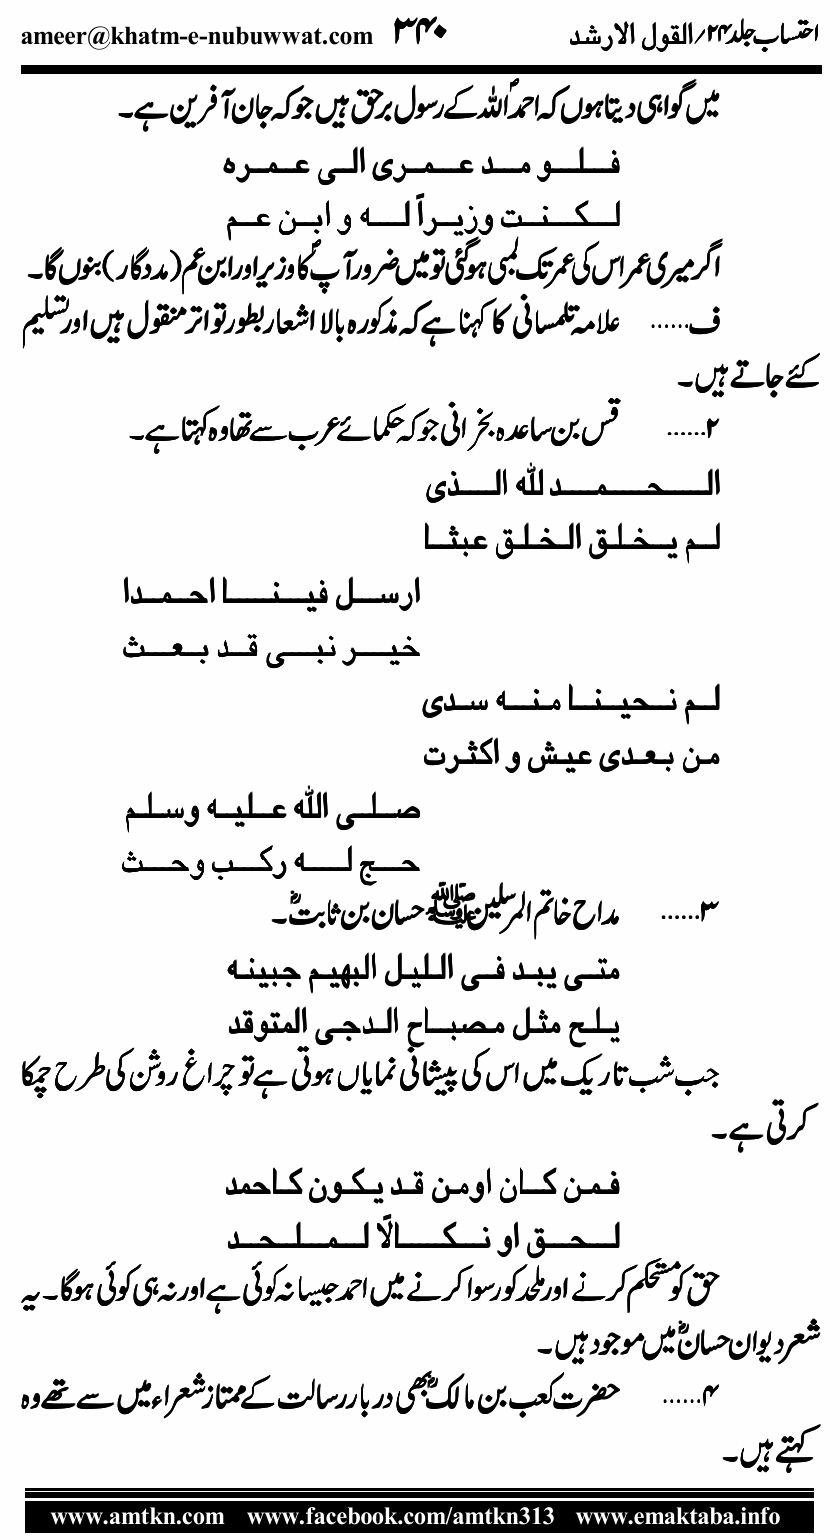 احتساب جلد۲۴؍القول الارشد ۳۴۰ ameer@khatm-e-nubuwwat.com
میں گواہی دیتا ہوں کہ احمدؐ اللہ کے رسول برحق ہیں جو کہ جان آفرین ہے۔
فلو مد عمری الی عمرہ
لکنت وزیراً لہ و ابن عم
اگر میری عمر اس کی عمر تک لمبی ہوگئی تو میں ضرور آپؐ کا وزیر اور ابن عم (مددگار) بنوں گا۔
ف...... علامہ تلمسانی کا کہنا ہے کہ مذکورہ بالا اشعار بطور تواتر منقول ہیں اور تسلیم
کئے جاتے ہیں۔
۲...... قس بن ساعدہ بخرانی جو کہ حکمائے عرب سے تھا وہ کہتا ہے۔
الحمد للہ الذی
لم یخلق الخلق عبثا
ارسل فینا احمدا
خیر نبی قد بعث
لم نحینا منہ سدی
من بعدی عیش و اکثرت
صلی اللہ علیہ وسلم
حج لہ رکب وحث
۳...... مداح خاتم المرسلین ﷺ حسان بن ثابتؓ۔
متی یبد فی اللیل البھیم جبینہ
یلح مثل مصباح الدجی المتوقد
جب شب تاریک میں اس کی پیشانی نمایاں ہوتی ہے تو چراغ روشن کی طرح چمکا
کرتی ہے۔
فمن کان اومن قد یکون کاحمد
لحق او نکالًا لملحد
حق کو مستحکم کرنے اور ملحد کو رسوا کرنے میں احمد جیسا نہ کوئی ہے اور نہ ہی کوئی ہوگا۔ یہ
شعر دیوان حسانؓ میں موجود ہیں۔
۴...... حضرت کعب بن مالکؓ بھی دربار رسالت کے ممتاز شعراء میں سے تھے وہ
کہتے ہیں۔
www.amtkn.com www.facebook.com/amtkn313 www.emaktaba.info